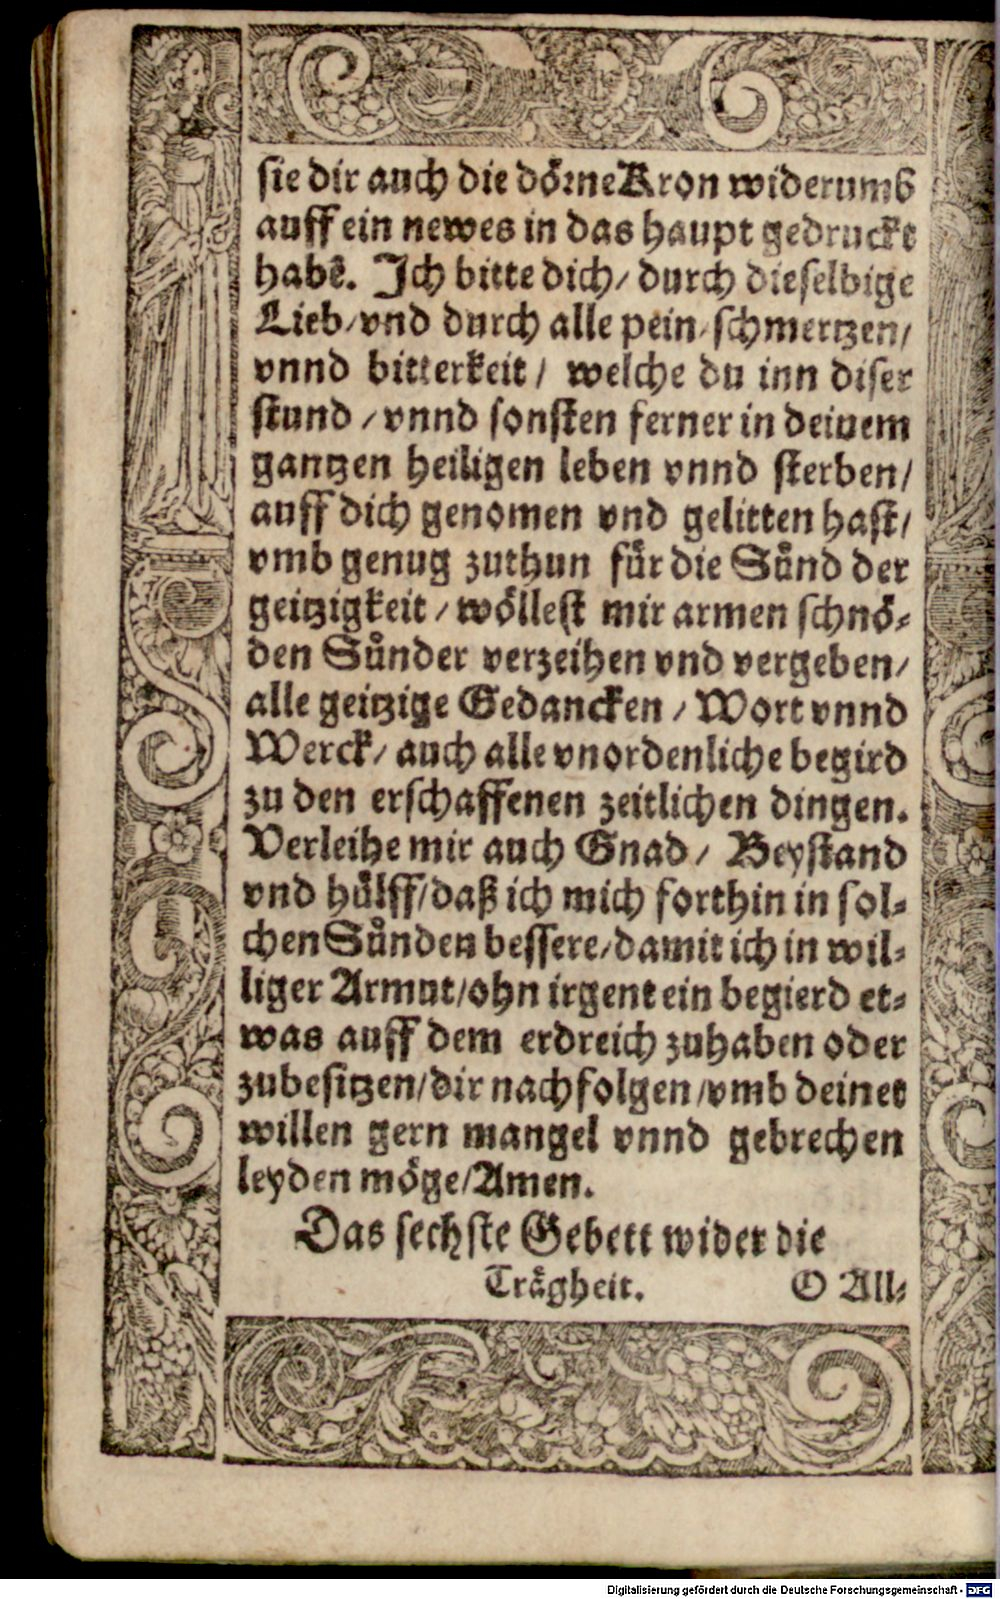 sie dir auch die dörne Kron widerumb
auff ein newes in das haupt gedruckt
habē. Ich bitte dich / durch dieselbige
Lieb / vnd durch alle pein / schmertzen /
vnnd bitterkeit / welche du inn diser
stund / vnnd sonsten ferner in deinem
gantzen heiligen leben vnnd sterben /
auff dich genomen vnd gelitten hast /
vmb genug zuthun für die Sünd der
geitzigkeit / wöllest mir armen schnö-
den Sünder verzeihen vnd vergeben /
alle geitzige Gedancken / Wort vnnd
Werck / auch alle vnordenliche begird
zu den erschaffenen zeitlichen dingen.
Verleihe mir auch Gnad / Beystand
vnd hülff / daß ich mich forthin in sol-
chen Sünden bessere / damit ich in wil-
liger Armut / ohn irgent ein begierd et-
was auff dem erdreich zuhaben oder
zubesitzen / dir nachfolgen / vmb deinet
willen gern mangel vnnd gebrechen
leyden möge / Amen.
Das sechste Gebett wider die
Trägheit. O All-
Digitalisierung gefördert durch die Deutsche Forschungsgemeinschaft - DFG